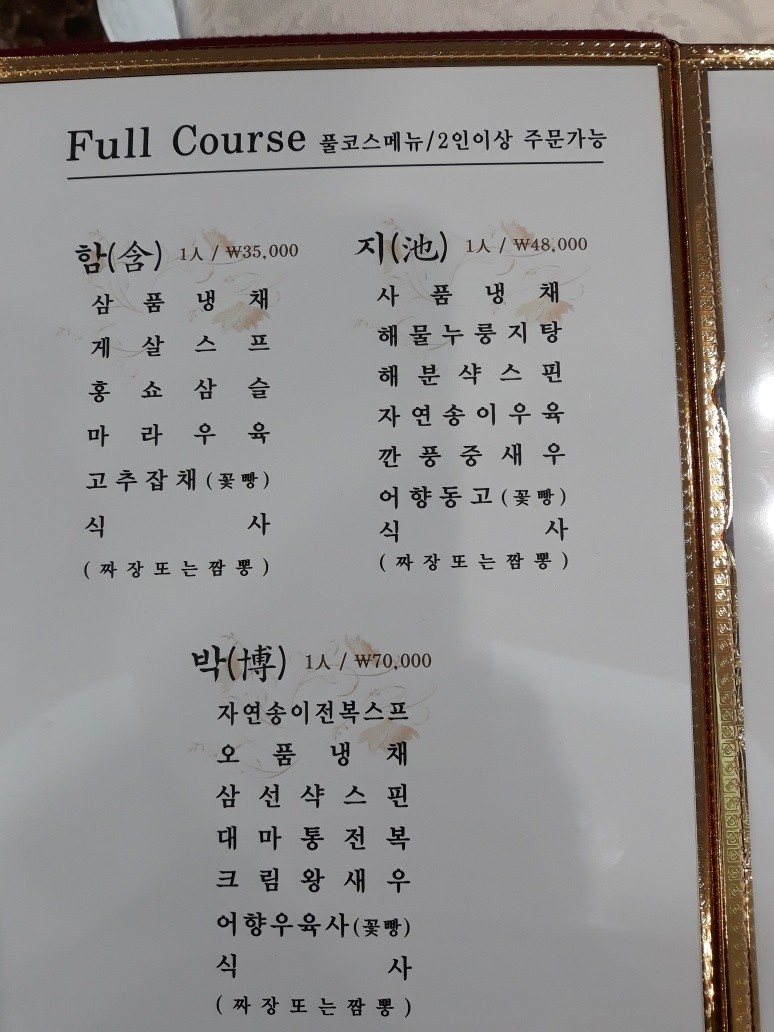 Full Course 풀코스메뉴/2인이상 주문가능
함(含) 1人 / ₩35,000
삼품냉채
게살스프
홍쇼삼슬
마라우육
고추잡채(꽃빵)
식사
(짜장또는짬뽕)
지(池) 1人 / ₩48,000
사품냉채
해물누룽지탕
해분샥스핀
자연송이우육
깐풍중새우
어향동고(꽃빵)
식사
(짜장또는짬뽕)
박(博) 1人 / ₩70,000
자연송이전복스프
오품냉채
삼선샥스핀
대마통전복
크림왕새우
어향우육사(꽃빵)
식사
(짜장또는짬뽕)